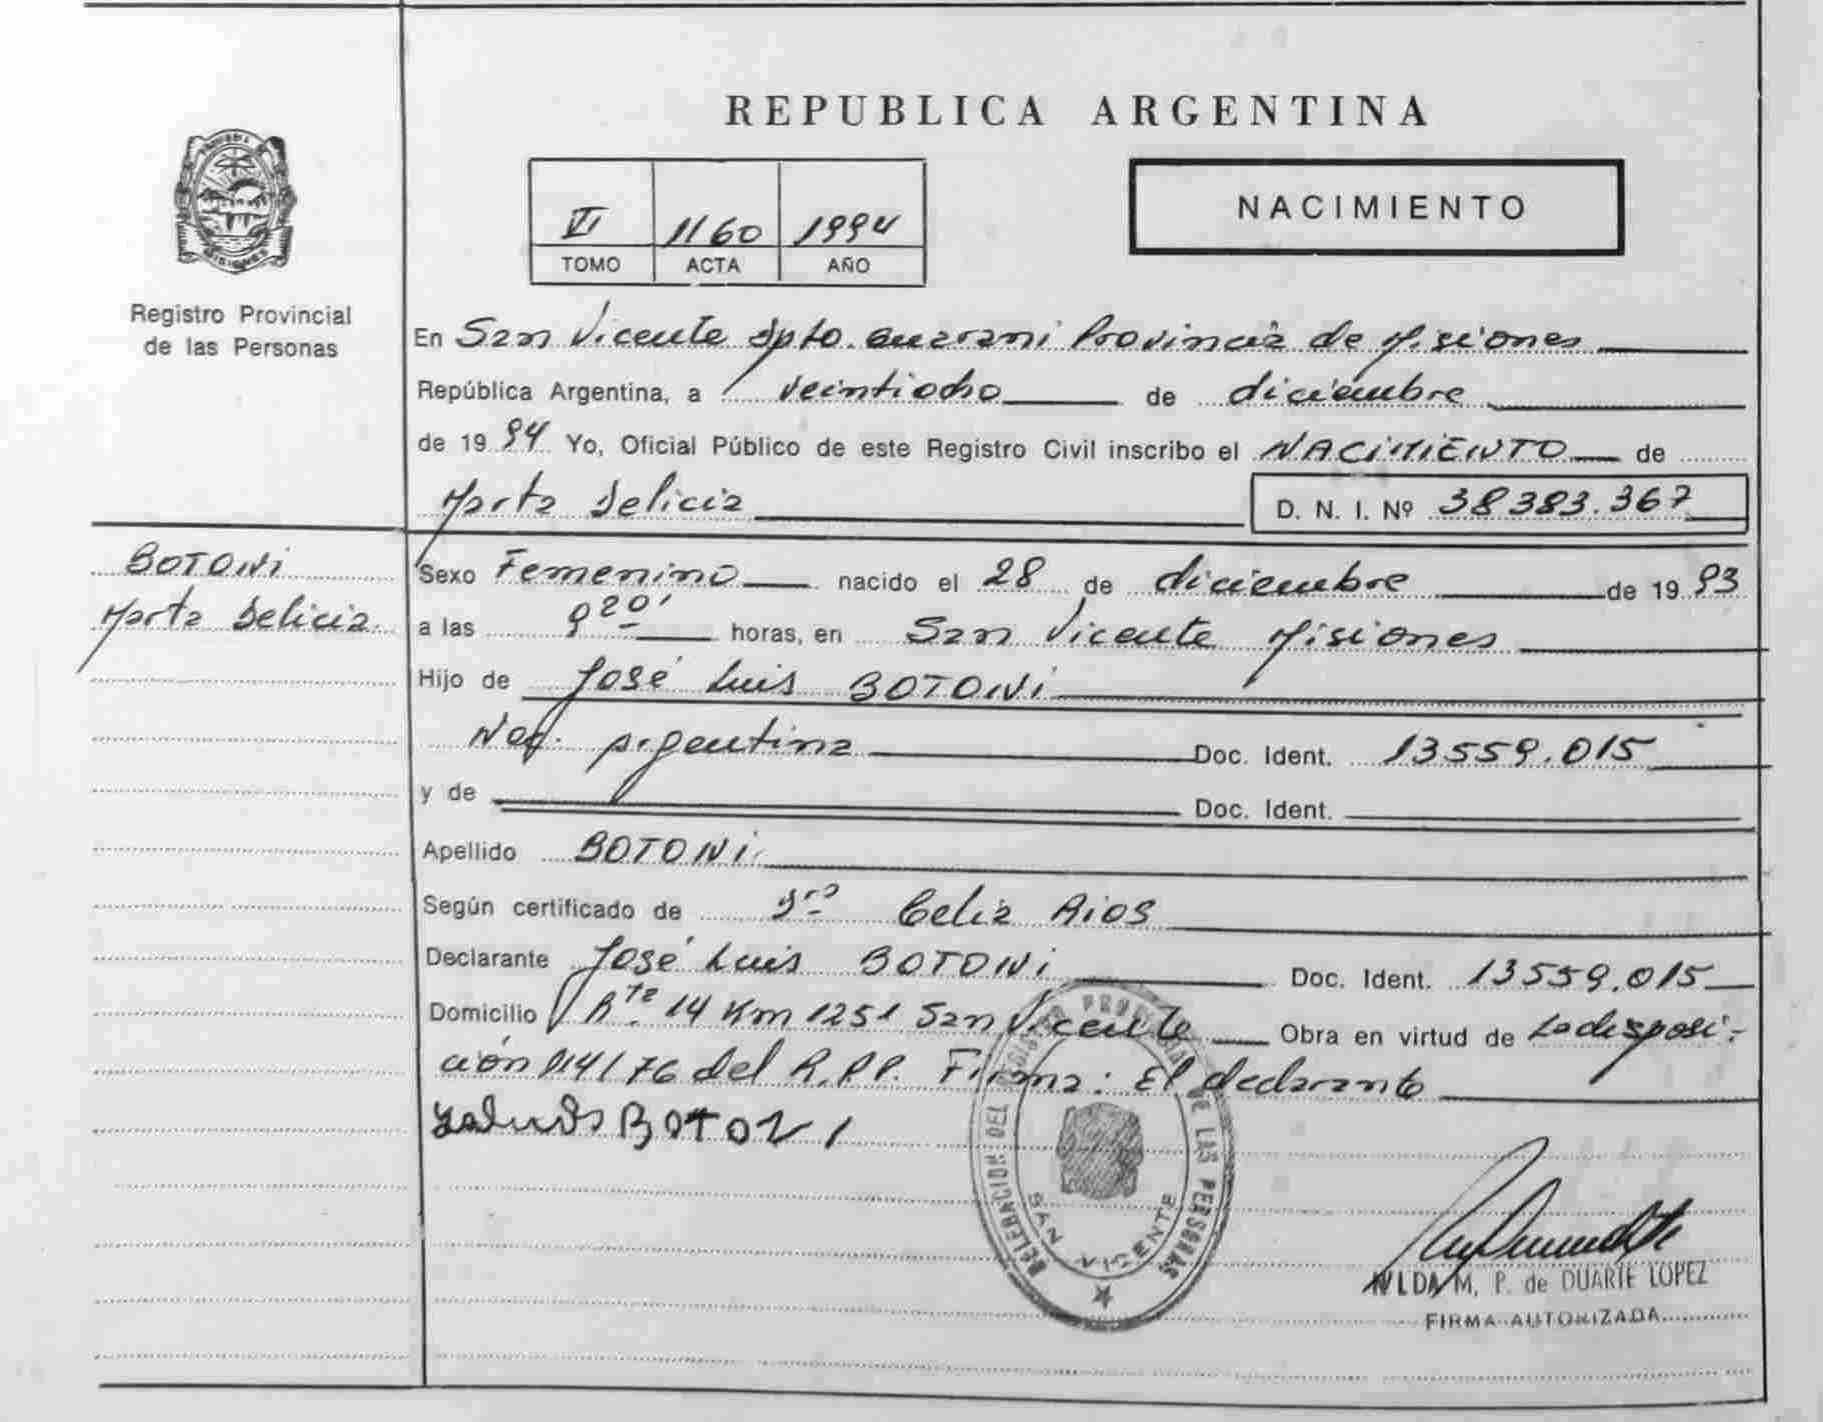 REPUBLICA ARGENTINA
NACIMIENTO
VI 1160 1994
TOMO ACTA AÑO
Registro Provincial
de las Personas
MISIONES
En San Vicente Dpto. Guarani Provincia de Misiones
República Argentina, a veintiocho de diciembre
de 1994 Yo, Oficial Público de este Registro Civil inscribo el NACIMIENTO de
Marta Delicia D. N. I. Nº 38383.367
BOTONi
Marta Delicia
Sexo Femenino nacido el 28 de diciembre de 1993
a las 9 20' horas, en San Vicente Misiones
Hijo de José Luis BOTONi
Nac. Argentina Doc. Ident. 13559.015
y de Doc. Ident.
Apellido BOTONi
Según certificado de Celia Rios
Declarante José Luis BOTONi Doc. Ident. 13559.015
Domicilio Rta 14 Km 1251 San Vicente Obra en virtud de La disposi-
ción 014/76 del R.P.P. Firma: El declarante
BOTONI
DELEGACION DEL REGISTRO PROVINCIAL DE LAS PERSONAS
SAN VICENTE
NILDA M. P. de DUARTE LOPEZ
FIRMA AUTORIZADA